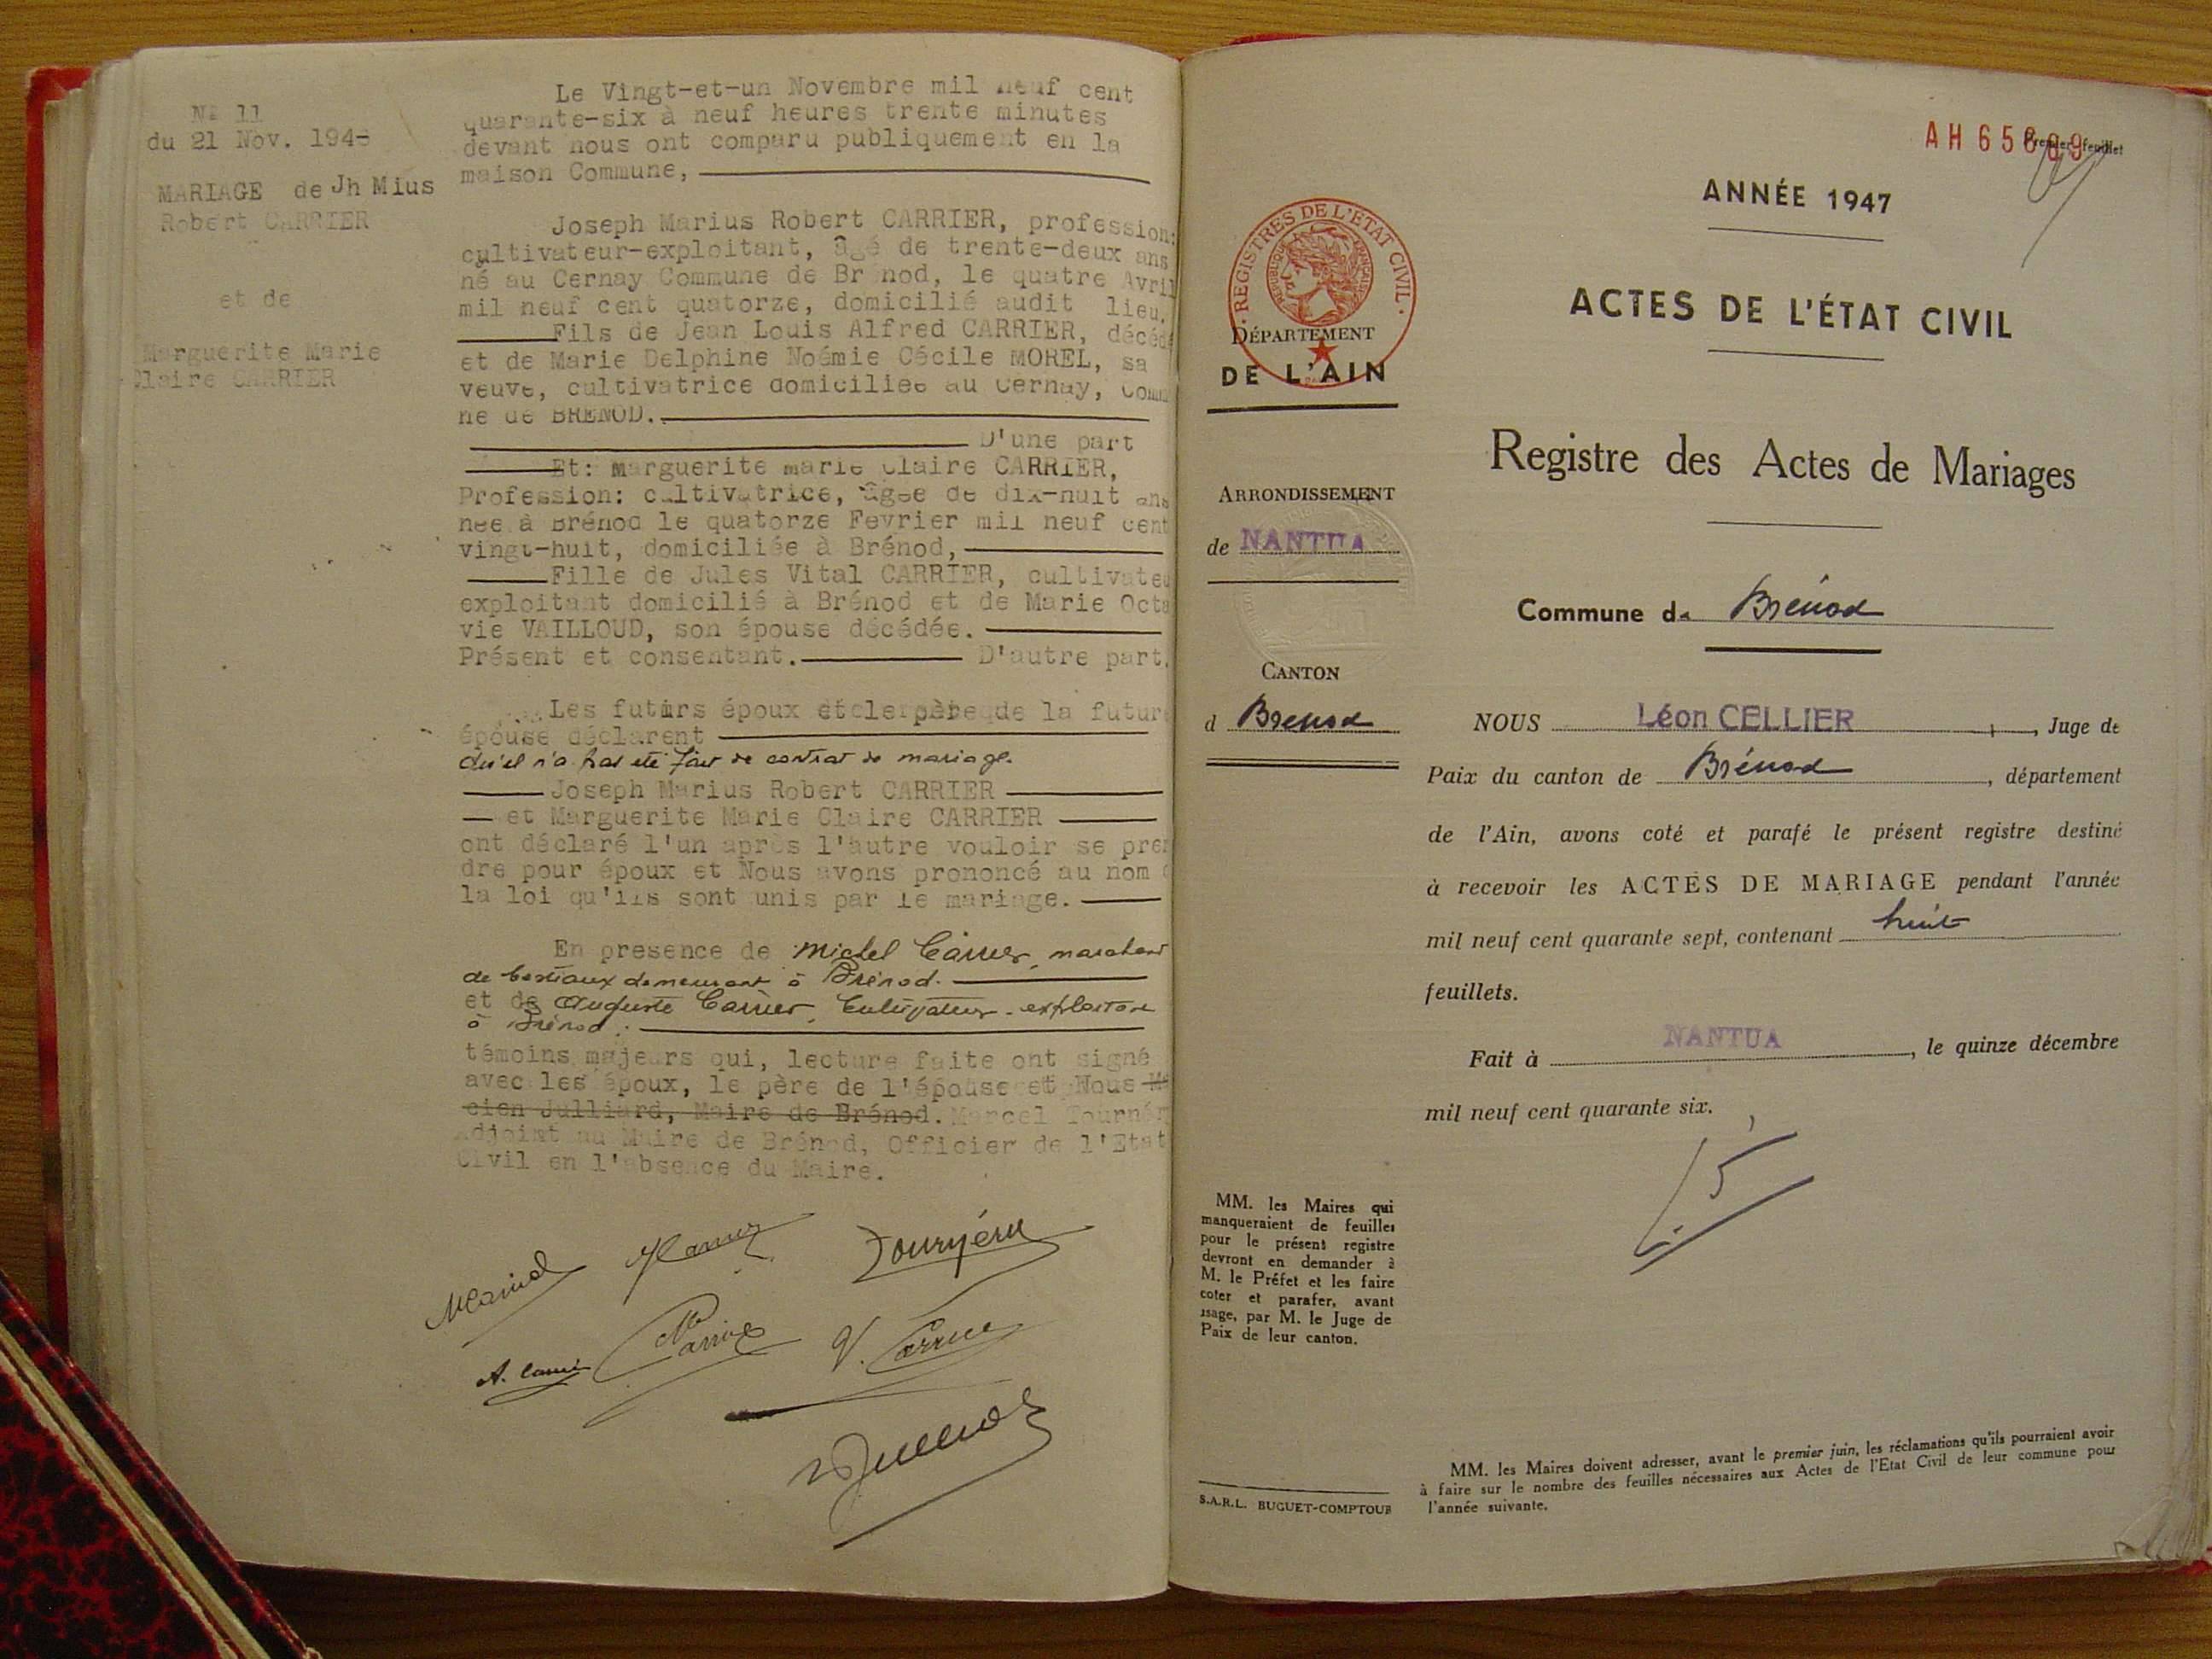 Nº 11
du 21 Nov. 194
MARIAGE de Jh Mius
Robert CARRIER
et de
Marguerite Marie
Claire CARRIER
Le Vingt-et-un Novembre mil neuf cent
quarante-six à neuf heures trente minutes
devant nous ont comparu publiquement en la
maison Commune,
Joseph Marius Robert CARRIER, profession:
cultivateur-exploitant, âgé de trente-deux ans
né au Cernay Commune de Brénod, le quatre Avril
mil neuf cent quatorze, domicilié audit lieu.
Fils de Jean Louis Alfred CARRIER, décédé
et de Marie Delphine Noémie Cécile MOREL, sa
veuve, cultivatrice domiciliée au Cernay, Commu
ne de BRENOD.
D'une part
Et: Marguerite Marie Claire CARRIER,
Profession: cultivatrice, âgée de dix-huit ans
née à Brénod le quatorze Fevrier mil neuf cent
vingt-huit, domiciliée à Brénod,
Fille de Jules Vital CARRIER, cultivateu
exploitant domicilié à Brénod et de Marie Octa
vie VAILLOUD, son épouse décédée.
Présent et consentant. D'autre part.
Les futurs époux et le père de la future
épouse déclarent
qu'il n'a pas été fait de contrat de mariage.
Joseph Marius Robert CARRIER
et Marguerite Marie Claire CARRIER
ont déclaré l'un après l'autre vouloir se pren
dre pour époux et Nous avons prononcé au nom d
la loi qu'ils sont unis par le mariage.
En presence de Michel Carrier, marchand
de bestiaux demeurant à Brénod.
et de Auguste Carrier, Cultivateur-exploitant
à Brénod.
témoins majeurs qui, lecture faite ont signé
avec les époux, le père de l'épouse et Nous
cien Julliard, Maire de Brénod. Marcel Tournér
Adjoint au Maire de Brénod, Officier de l'Etat
Civil en l'absence du Maire.
Tournéru
A. Carrier
V. Carrier
AH 65
Premier feuillet
ANNÉE 1947
ACTES DE L'ÉTAT CIVIL
REGISTRES DE L'ÉTAT CIVIL
RÉPUBLIQUE FRANÇAISE
DÉPARTEMENT
DE L'AIN
Registre des Actes de Mariages
ARRONDISSEMENT
de NANTUA
Commune de Brénod
CANTON
d Brenod
NOUS Léon CELLIER, Juge de
Paix du canton de Brénod, département
de l'Ain, avons coté et parafé le présent registre destiné
à recevoir les ACTES DE MARIAGE pendant l'année
mil neuf cent quarante sept, contenant huit
feuillets.
Fait à NANTUA, le quinze décembre
mil neuf cent quarante six.
MM. les Maires qui
manqueraient de feuilles
pour le présent registre
devront en demander à
M. le Préfet et les faire
coter et parafer, avant
usage, par M. le Juge de
Paix de leur canton.
S.A.R.L. BUGUET-COMPTOUR
MM. les Maires doivent adresser, avant le premier juin, les réclamations qu'ils pourraient avoir
à faire sur le nombre des feuilles nécessaires aux Actes de l'Etat Civil de leur commune pour
l'année suivante.